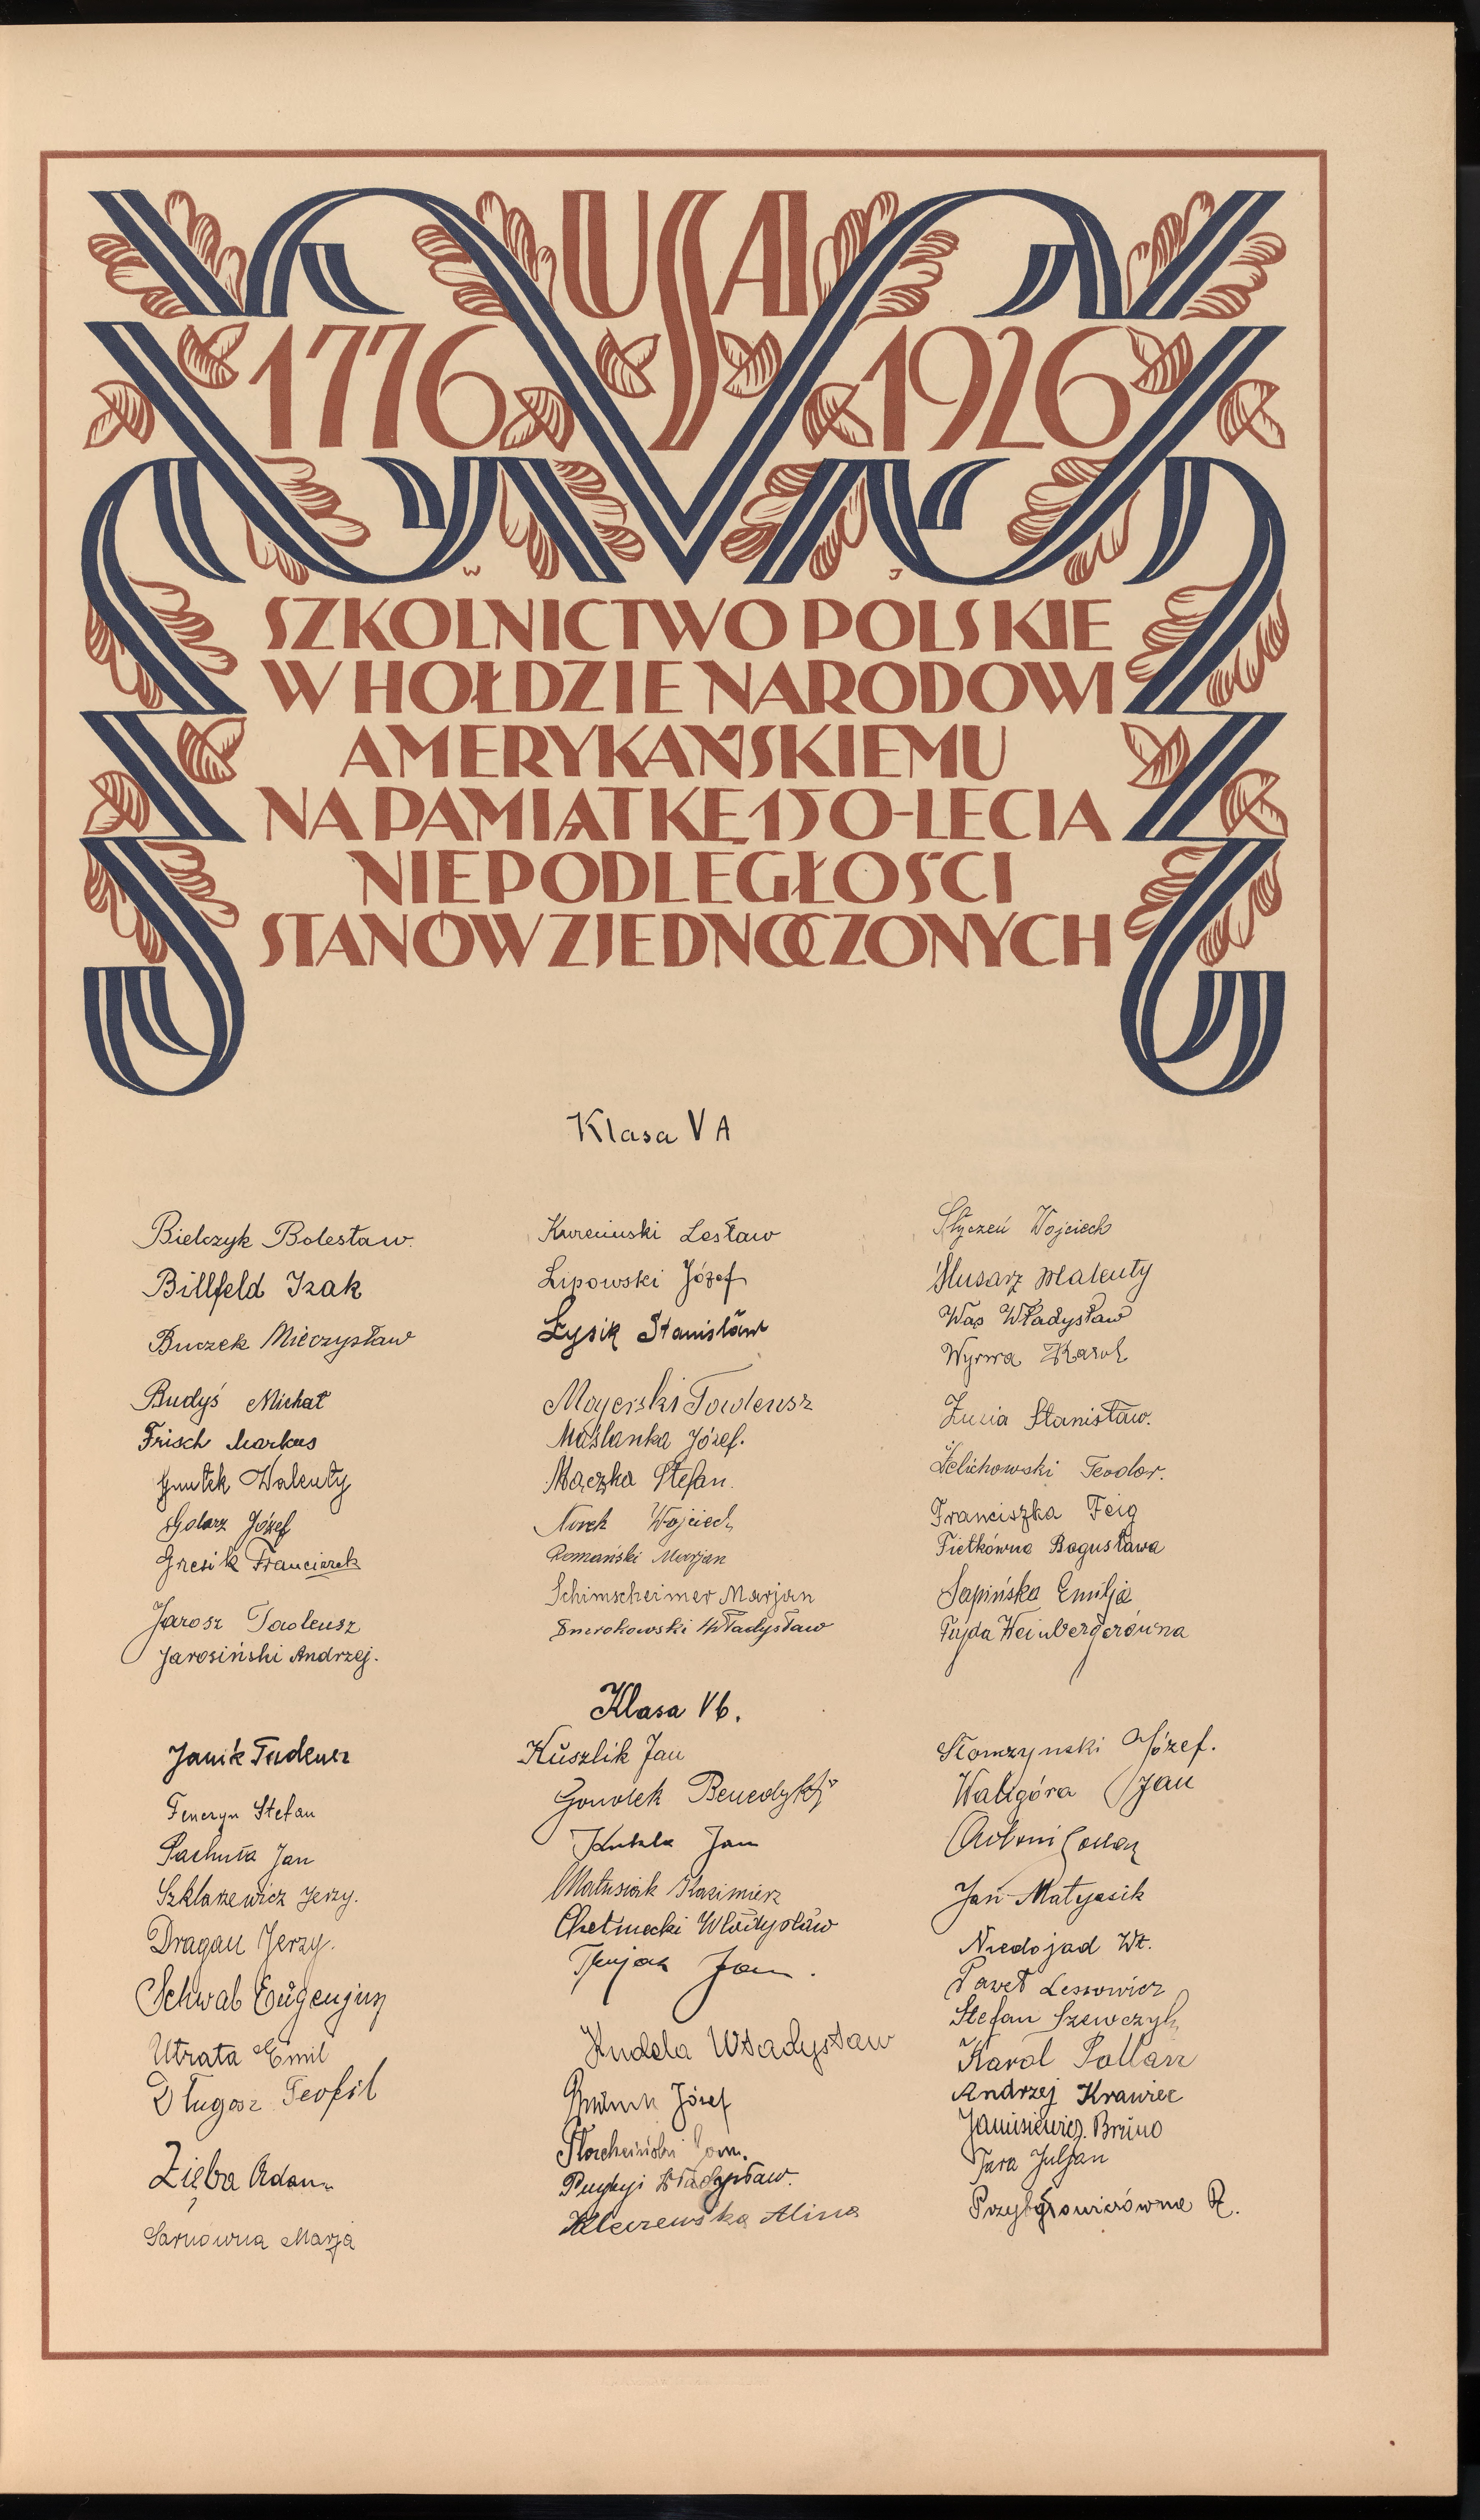 USA
1776 1926
W J
SZKOLNICTWO POLSKIE
W HOŁDZIE NARODOWI
AMERYKAŃSKIEMU
NA PAMIĄTKĘ 150-LECIA
NIEPODLEGŁOŚCI
STANÓW ZJEDNOCZONYCH
Klasa V A
Bielczyk Bolesław
Billfeld Izak
Buczek Mieczysław
Budyś Michał
Frisch Markus
Walenty
Golarz Józef
Gresik Franciszek
Jarosz Tadeusz
Jarosiński Andrzej.
Lesław
Lipowski Józef
Łysik Stanisław
Majerski Tadeusz
Maślanka Józef.
Mączka Stefan.
Norek Wojciech
Romański Marjan
Schimscheimer Marjan
Smerokowski Władysław
Styczeń Wojciech
Ślusarz Walenty
Wąs Władysław
Wyrwa Karol
Stanisław.
Żelichowski Teodor.
Franciszka Feig
Fietkówna Bogusława
Sapińska Emilja
Fujda Weinbergerówna
Klasa Vb.
Janik Tadeusz
Fenczyn Stefan
Pachuta Jan
Szklarzewicz Jerzy.
Dragan Jerzy.
Schwab Eugenjusz
Utrata Emil
Długosz Teofil
Zięba Adam
Sarnówna Marja
Kuszlik Jan
Gonolek Benedykt
Kukla Jan
Matusiak Kazimierz
Chełmecki Władysław
Jan.
Kudela Władysław
Józef
Jan.
Władysław.
Alina
Słomczynski Józef.
Waligóra Jan
Antoni
Jan Matyasik
Niedojad Wł.
Paweł Lessowicz
Stefan Szewczyk
Karol Pollarz
Andrzej Krawiec
Janusiewicz Bruno
Tara Juljan
R.